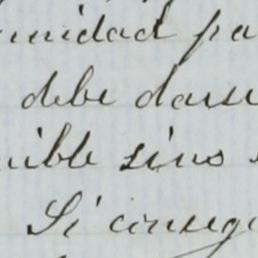 unidad pa
debe darse
ible sino
Si consegu